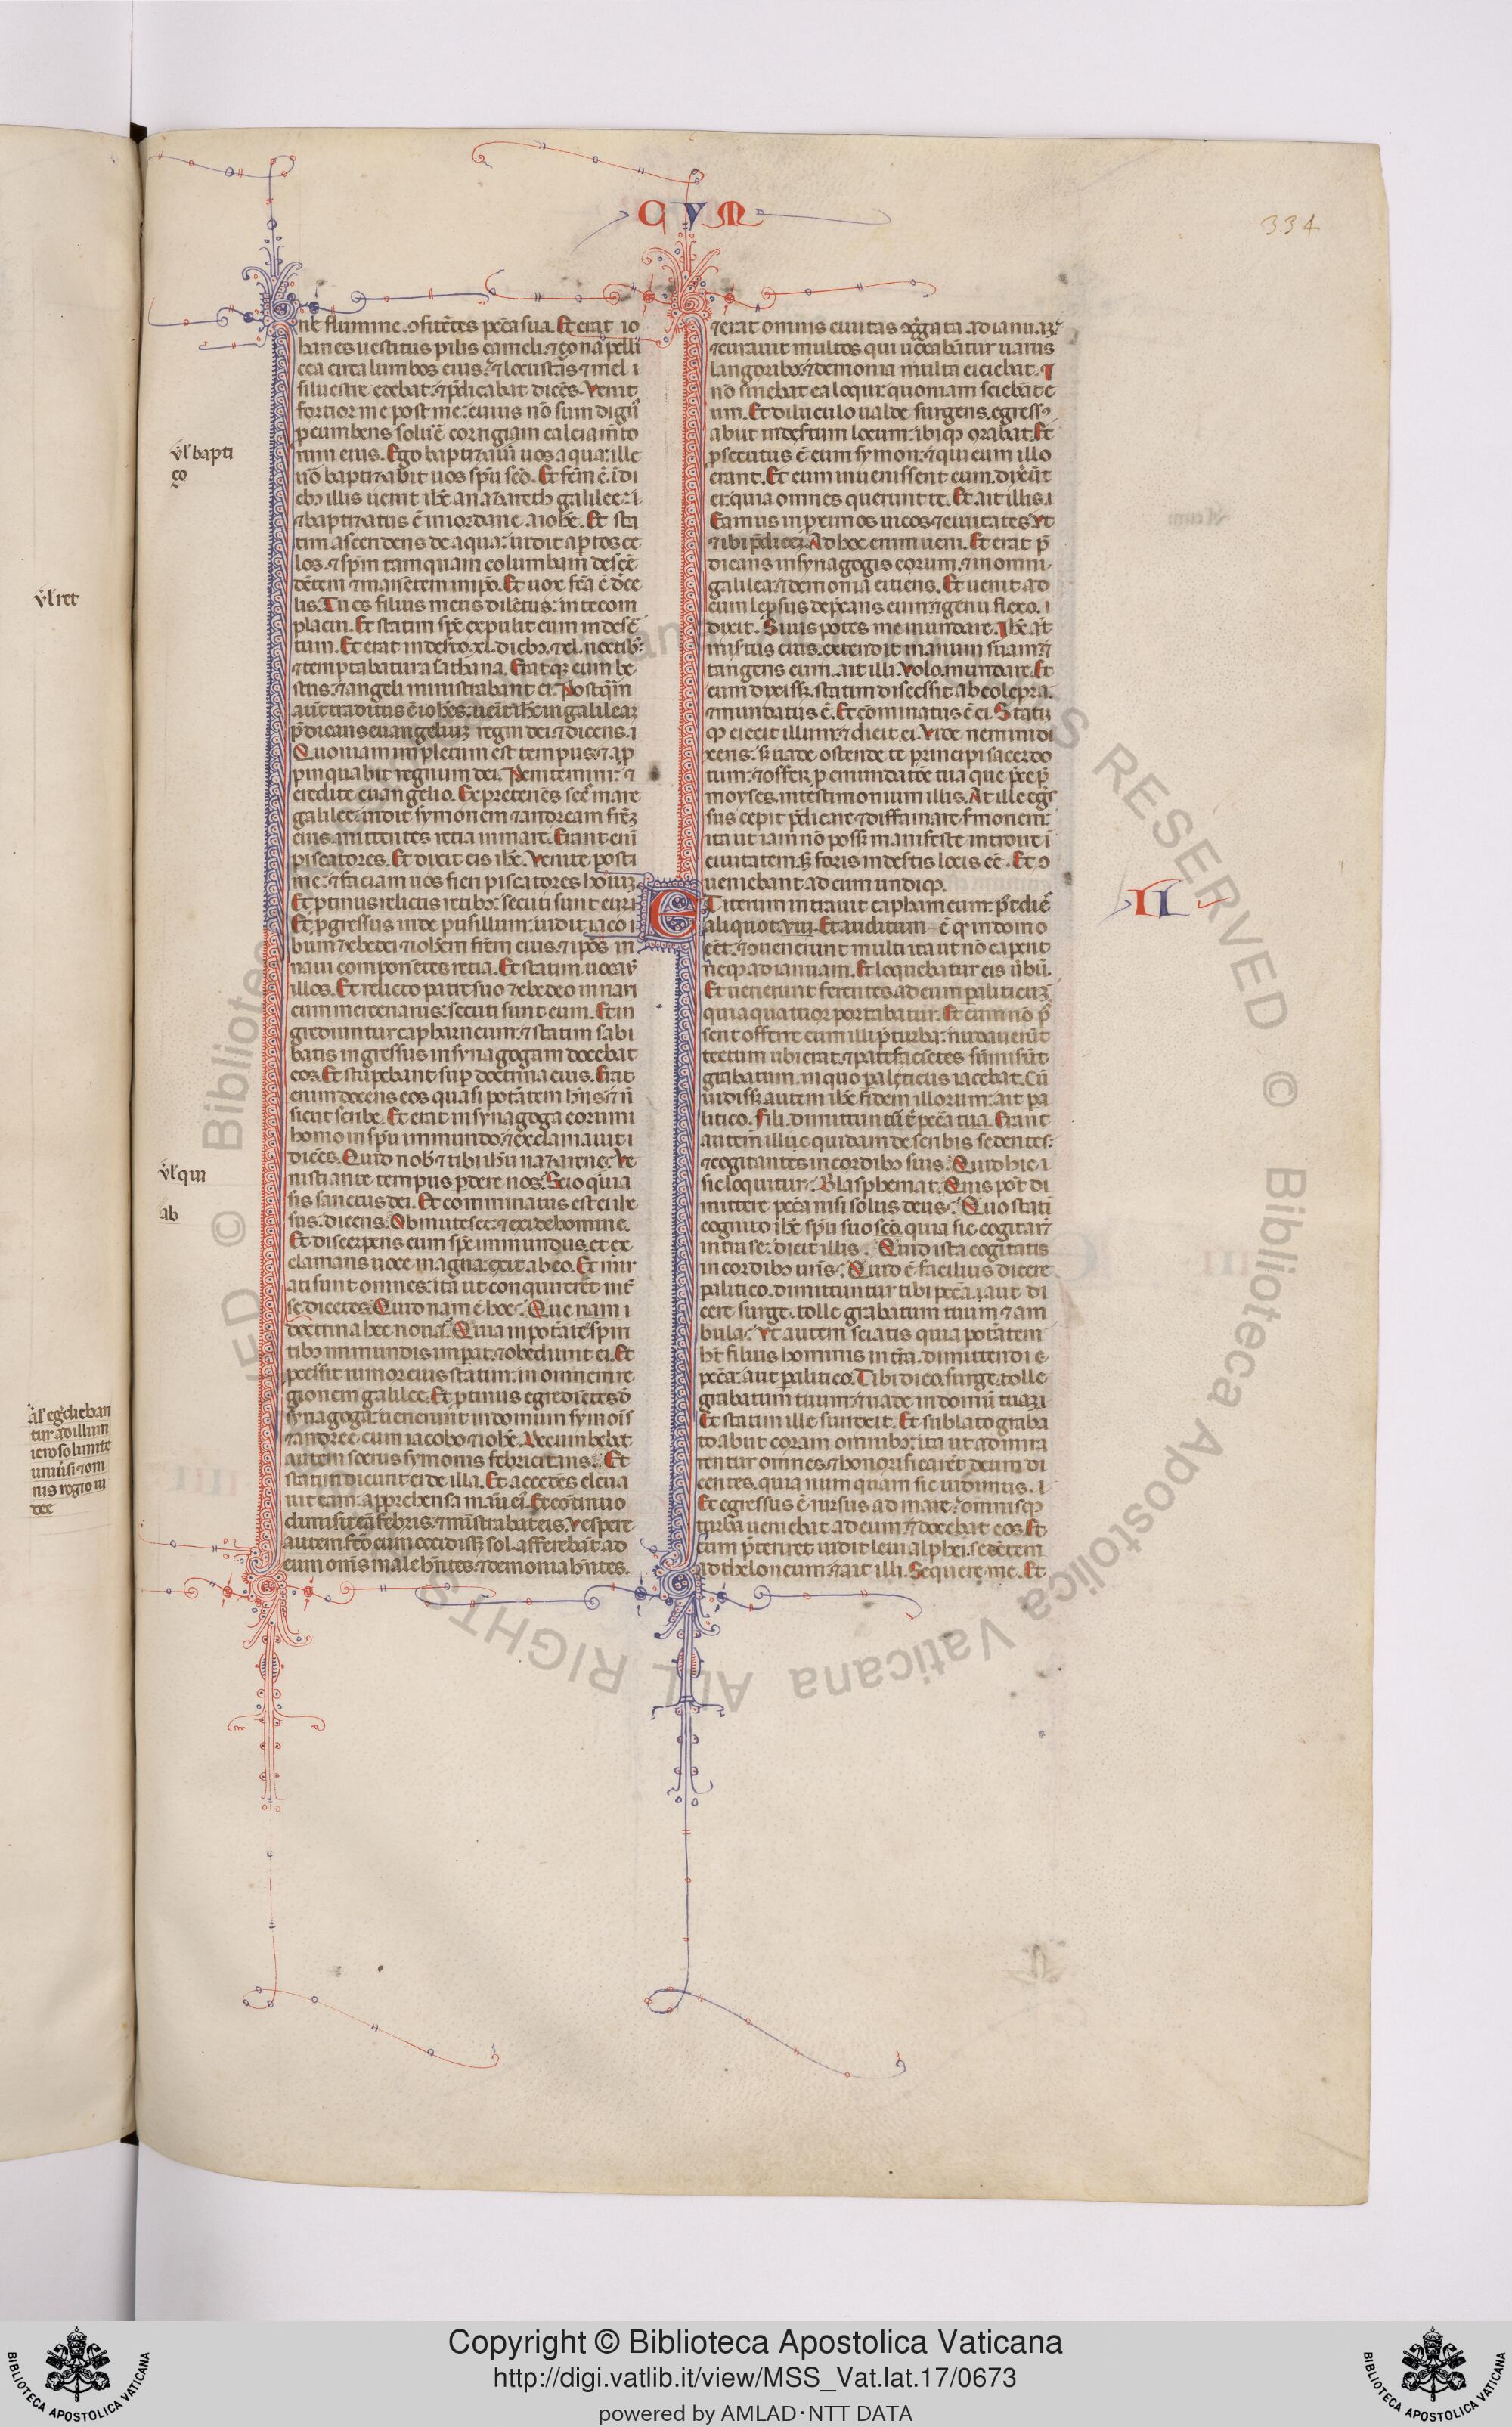 CVM
334
nis flumine. ꝯfitẽtes pcc̃a sua. Et erat io
hanes uestitus pilis cameli. ⁊ çona pelli
cea circa lumbos eius. ⁊ locustas ⁊ mel i
siluestre edebat. ⁊ p̃dicabat dicẽs. Venit
fortior me post me: cuius nõ sum dign̄
ꝓcumbens soluẽ corrigiam calciam̃to
rum eius. Ego baptiçaui uos aqua: ille
uõ baptiçabit uos sp̃u sc̃o. Et fc̃m ẽ ĩ di
ebꝫ illis uenit ihc̃ a naçareth galilee: i
⁊ baptiçatus ẽ in iordane a ioh̃e. Et sta
tim ascendens de aqua: uidit aptos ce
los. ⁊ sp̃m tamquam columbam descẽ
dẽtem ⁊ manẽtem in ip̃o. Et uox fc̃a ẽ d̃ ce
lis. Tu es filius meus dilectus: in te com
placui. Et statim sp̃c expulit eum in desẽ
tum. Et erat in desto .xl. diebꝫ. ⁊ .xl. noctibꝫ:
⁊ temptabatur a sathana. Eratqꝫ cum be
stiis: ⁊ angeli ministrabant ei. Postq̃m
aut̃ traditus ẽ ioh̃es: uenit ihc̃ in galileaꝫ
p̃dicans euangeliuꝫ regni dei. ⁊ dicens. i
Quoniam impletum est tempus. ⁊ ap̃
pinquabit regnum dei. Penitemini: ⁊
credite euangelio. Et preteriẽs sec̃ mare
galilee: uidit symonem ⁊ andream fr̃eꝫ
eius. mittentes retia in mare. Erant eni
piscatores. Et dixit eis ihc̃. Venite post i
me: ⁊ faciam uos fieri piscatores hoĩuꝫ.
Et ꝓtinus relictis retibꝫ: secuti sunt euꝫ i
Et ꝓgressus inde pusillum: uidit iaco i
bum çebedei ⁊ ioh̃em fr̃em eius. ⁊ ip̃os in
naui componẽtes retia. Et statim uocaũ
illos. Et relicto patre suo çebedeo in naui
cum mercenariis: secuti sunt eum. Et in
grediuntur capharneum: ⁊ statim sabi
batis ingressus in synagogam docebat
eos. Et stupebant sup doctrina eius. Erat
enim docens eos quasi potãtem hñs: ⁊ ñ
sicut scribe. Et erat in synagoga eorum i
homo in sp̃u immundo. ⁊ exclamauit i
dicẽs. Quid nob̃ ⁊ tibi ihũ naçarene: Ve
nisti ante tempus pdere nos. Scio quia
sis sanctus dei. Et comminatus est ei ihe
sus: dicens. Obmutesce: ⁊ exi de homine.
Et discerpens eum sp̃c immundus. et ex
clamans uoce magna: exiit ab eo. Et mir
ati sunt omnes: ita ut conquirerẽt int̃
se dicẽtes. Quid nam ẽ hoc. Que nam i
doctrina hec noua. Quia in potãte spiri
tibꝫ immundis impat. ⁊ obediunt ei. Et
ꝓcessit rumor eius statim: in omnem re
gionem galilee. Et ꝓtinus egrediẽtes d̃
synagoga: uenerunt in domum symõis
⁊ andree cum iacobo ⁊ ioh̃e. Decumbebat
autem socrus symonis febricitans. Et
statim dicunt ei de illa. Et accedẽs eleua
uit eam: apprehensa manu ei⁹. Et cõtinuo
dimisit eã febris. ⁊ mĩstrabat eis. Vespere
autem fc̃o cum occidissꝫ sol. afferebãt ad
eum om̃s male hñtes. ⁊ demonia hñtes.
⁊ erat omnis ciuitas ꝯg̃gata ad ianuaꝫ.
⁊ curauit multos qui uexabãtur uariis
langoribꝫ. ⁊ demonia multa eiciebat. ⁊
nõ sinebat ea loqui: quoniam sciebãt e
um. Et diluculo ualde surgens. egress⁹
abiit in destum locum: ibiqꝫ orabat. Et
ꝓsecutus ẽ eum symon: ⁊ qui cum illo
erant. Et cum inuenissent eum. dixer̃t
ei: quia omnes querunt te. Et ait illis. i
Eamus in ꝓximos uicos ⁊ ciuitates: Vt
⁊ ibi p̃dicem. Ad hoc enim ueni. Et erat p̃
dicans in synagogis eorum. ⁊ in omni
galilea: ⁊ demonia eitiens. Et uenit ad
eum leprsus deprecans eum: ⁊ genu flexo. i
dixit. Si uis potes me mundare. Ihc̃ aũt
miestus eius. extendit manum suam: ⁊
tangens eum. ait illi. Volo. mundare. Et
cum dixissꝫ. statim discessit ab eo lepra:
⁊ mundatus ẽ. Et cõminatus ẽ ei. Statiꝫ
qꝫ eiecit illum: ⁊ dicit ei. Vide nemini di
xens. sꝫ uade ostende te principi sacerdo
tum: ⁊ offer ꝓ emundatõe tua que p̃cep̃
moyses. in testimonium illis. At ille egs̃
sus cepit p̃dicare ⁊ diffamare s̃monem:
ita ut iam nõ possꝫ manifeste introire ĩ
ciuitatem. sꝫ foris in destis locis eẽ. Et ꝯ
ueniebant ad eum undiqꝫ.
ET iterum intrauit capharnaum: p̃t dies̃
aliquot .viii. Et auditum ẽ qꝫ in domo
eẽt: ⁊ ꝯuenerunt multi ita ut nõ caperet
neqꝫ ad ianuam. Et loquebatur eis ũbũ.
Et uenerunt ferentes ad eum paliticuꝫ
qui a quatuor portabatur. Et cum nõ p̃
sent offerre eum illi p̃ turba: nudauerũt
tectum ubi erat. ⁊ patefaciẽtes sũmisũt
grabatum. in quo paliticus iacebat. Cũ
uidissꝫ autem ihc̃ fidem illorum: ait pa
litico. Fili. dimittuntur t̃ pcc̃a tua. Erant
autem illuc quidam de scribis sedentes:
⁊ cogitantes in cordibꝫ suis. Quid hic i
sic loquitur. Blasphemat. Quis pot̃ di
mittere pcc̃a nisi solus deus. Quo stati
cognito ihc̃ sp̃u suo sc̃o. quia sic cogitar̃t
intra se. dicit illis. Quid ista cogitatis
in cordibꝫ uris̃. Quid ẽ facilius dicere
palitico. dimittuntur tibi pcc̃a. aut di
cere surge. tolle grabatum tuum ⁊ am
bula. Vt autem sciatis quia potãtem
ht̃ filius hominis in tr̃a. dimittendi e
pcc̃a: ait palitico. Tibi dico. surge. tolle
grabatum tuum: ⁊ uade in domũ tuaꝫ. i
Et statim ille surrexit. Et sublato graba
to abiit coram omnibꝫ: ita ut admira
rentur omnes ⁊ honorificarẽt deum di
centes. quia numquam sic uidimus. i
Et egressus ẽ rursus ad mare: omnisqꝫ
turba ueniebat ad eum: ⁊ docebat eos. Et
cum p̃teriret uidit leui alphei. sedẽtem
ad theloneum: ⁊ ait illi. Sequere me. Et
II
vl̃ bapti
ço
vl̃ ret
vl̃ qui
ab
al̃ egdieban
tur ad illum
ierosolimite
uniũsi ⁊ om
nis regio iu
dee
Copyright © Biblioteca Apostolica Vaticana
http://digi.vatlib.it/view/MSS_Vat.lat.17/0673
powered by AMLAD·NTT DATA
BIBLIOTECA APOSTOLICA VATICANA
BIBLIOTECA APOSTOLICA VATICANA
© Biblioteca Apostolica Vaticana ALL RIGHTS RESERVED